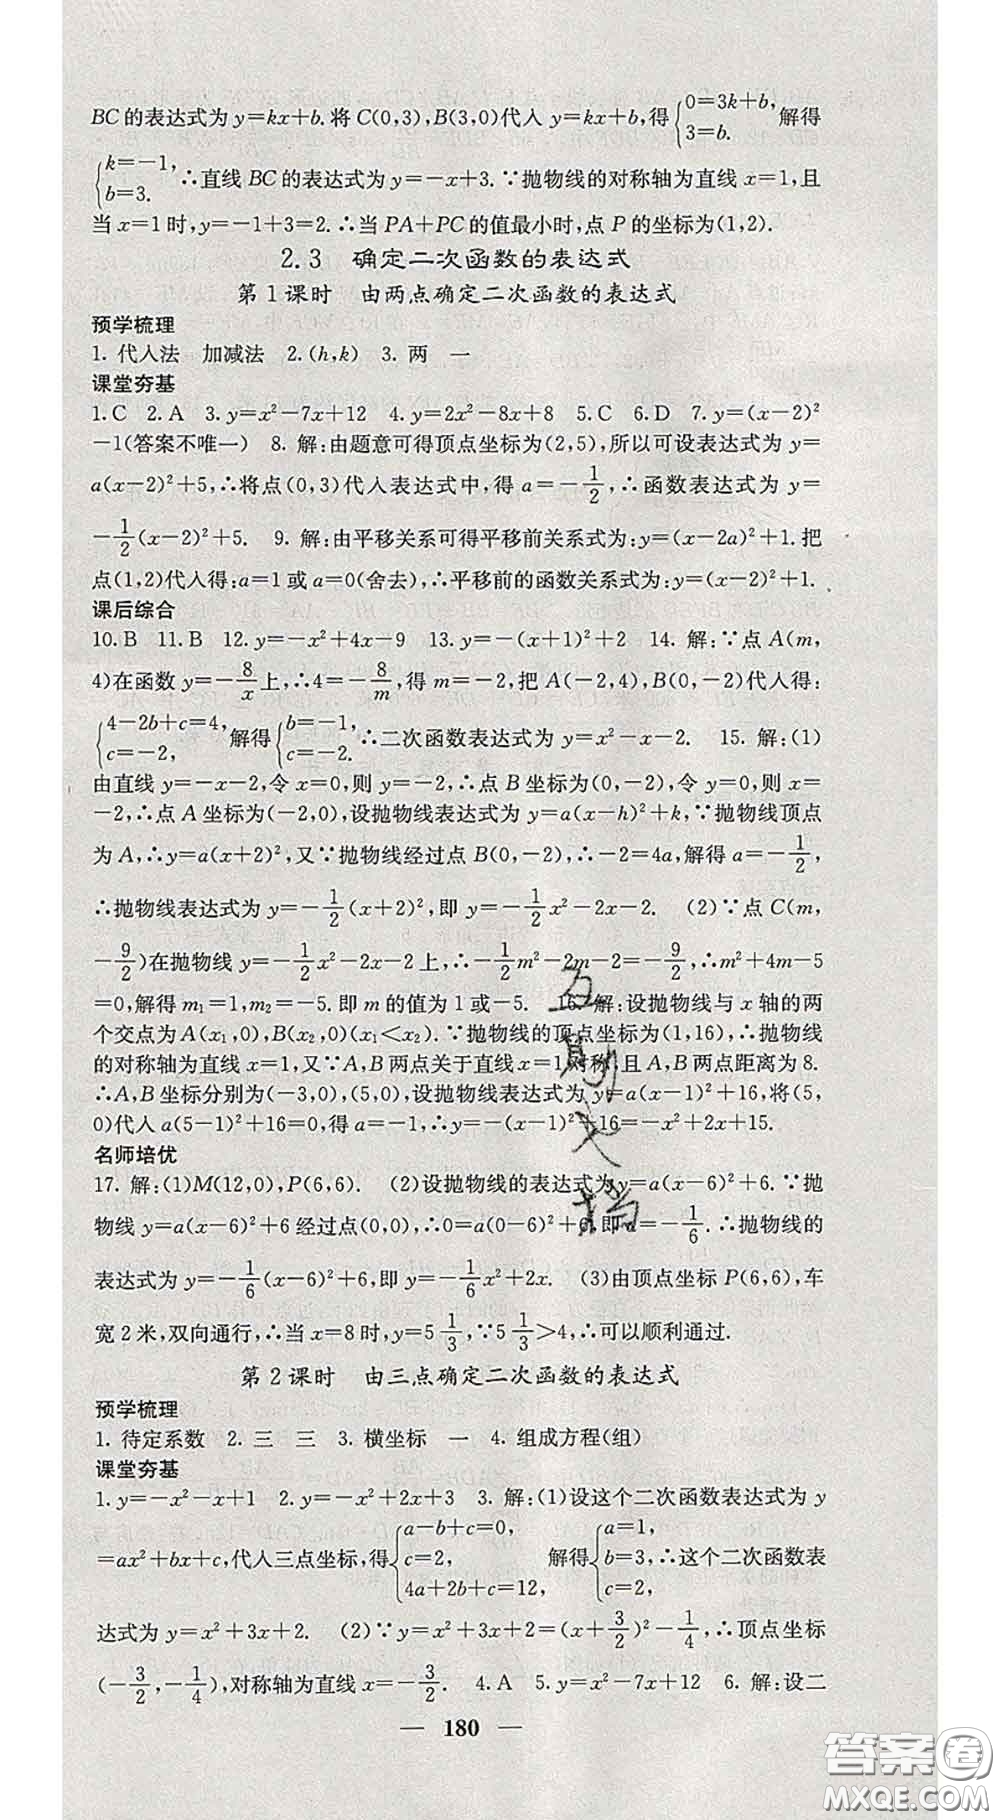 BC的表达式为y=kx+b.将C(0,3),B(3,0)代入y=kx+b,得{0=3k+b, 3=b. 解得
{k=-1, b=3. ∴直线BC的表达式为y=-x+3.∵抛物线的对称轴为直线x=1,且
当x=1时,y=-1+3=2.∴当PA+PC的值最小时,点P的坐标为(1,2).
2.3 确定二次函数的表达式
第1课时 由两点确定二次函数的表达式
预学梳理
1. 代入法 加减法 2.(h,k) 3. 两 一
课堂夯基
1.C 2.A 3.y=x²-7x+12 4.y=2x²-8x+8 5.C 6.D 7.y=(x-2)²
-1(答案不唯一) 8. 解:由题意可得顶点坐标为(2,5),所以可设表达式为y=
a(x-2)²+5,∴将点(0,3)代入表达式中,得a=-1/2,∴函数表达式为y=
-1/2(x-2)²+5. 9. 解:由平移关系可得平移前关系式为:y=(x-2a)²+1.把
点(1,2)代入得:a=1或a=0(舍去),∴平移前的函数关系式为:y=(x-2)²+1.
课后综合
10.B 11.B 12.y=-x²+4x-9 13.y=-(x+1)²+2 14. 解:∵点A(m,
4)在函数y=-8/x上,∴4=-8/m,得m=-2,把A(-2,4),B(0,-2)代入得:
{4-2b+c=4, c=-2, 解得{b=-1, c=-2. ∴二次函数表达式为y=x²-x-2. 15. 解:(1)
由直线y=-x-2,令x=0,则y=-2,∴点B坐标为(0,-2),令y=0,则x=
-2,∴点A坐标为(-2,0),设抛物线表达式为y=a(x-h)²+k,∵抛物线顶点
为A,∴y=a(x+2)²,又∵抛物线经过点B(0,-2),∴-2=4a,解得a=-1/2,
∴抛物线表达式为y=-1/2(x+2)²,即y=-1/2x²-2x-2. (2)∵点C(m,
-9/2)在抛物线y=-1/2x²-2x-2上,∴-1/2m²-2m-2=-9/2,∴m²+4m-5
=0,解得m₁=1,m₂=-5.即m的值为1或-5. 16. 解:设抛物线与x轴的两
个交点为A(x₁,0),B(x₂,0)(x₁<x₂).∵抛物线的顶点坐标为(1,16),∴抛物线
的对称轴为直线x=1,又∵A,B两点关于直线x=1对称,且A,B两点距离为8.
∴A,B坐标分别为(-3,0),(5,0),设抛物线表达式为y=a(x-1)²+16,将(5,
0)代入a(5-1)²+16=0,得a=-1,∴y=-(x-1)²+16=-x²+2x+15.
名师培优
17. 解:(1)M(12,0),P(6,6). (2)设抛物线的表达式为y=a(x-6)²+6.∵抛
物线y=a(x-6)²+6经过点(0,0),∴0=a(0-6)²+6,即a=-1/6.∴抛物线的
表达式为y=-1/6(x-6)²+6,即y=-1/6x²+2x. (3)由顶点坐标P(6,6),车
宽2米,双向通行,∴当x=8时,y=5 1/3,∵5 1/3>4,∴可以顺利通过.
第2课时 由三点确定二次函数的表达式
预学梳理
1. 待定系数 2. 三 三 3. 横坐标 一 4. 组成方程(组)
课堂夯基
1.y=-x²-x+1 2.y=-x²+2x+3 3. 解:(1)设这个二次函数表达式为y
=ax²+bx+c,代入三点坐标,得{a-b+c=0, c=2, 4a+2b+c=12, 解得{a=1, b=3, c=2, ∴这个二次函数表
达式为y=x²+3x+2. (2)∵y=x²+3x+2=(x+3/2)²-1/4,∴顶点坐标
(-3/2,-1/4),对称轴为直线x=-3/2. 4.A 5.y=x²-7x+12 6. 解:设二
— 180 —
答案圈
MXQE.COM